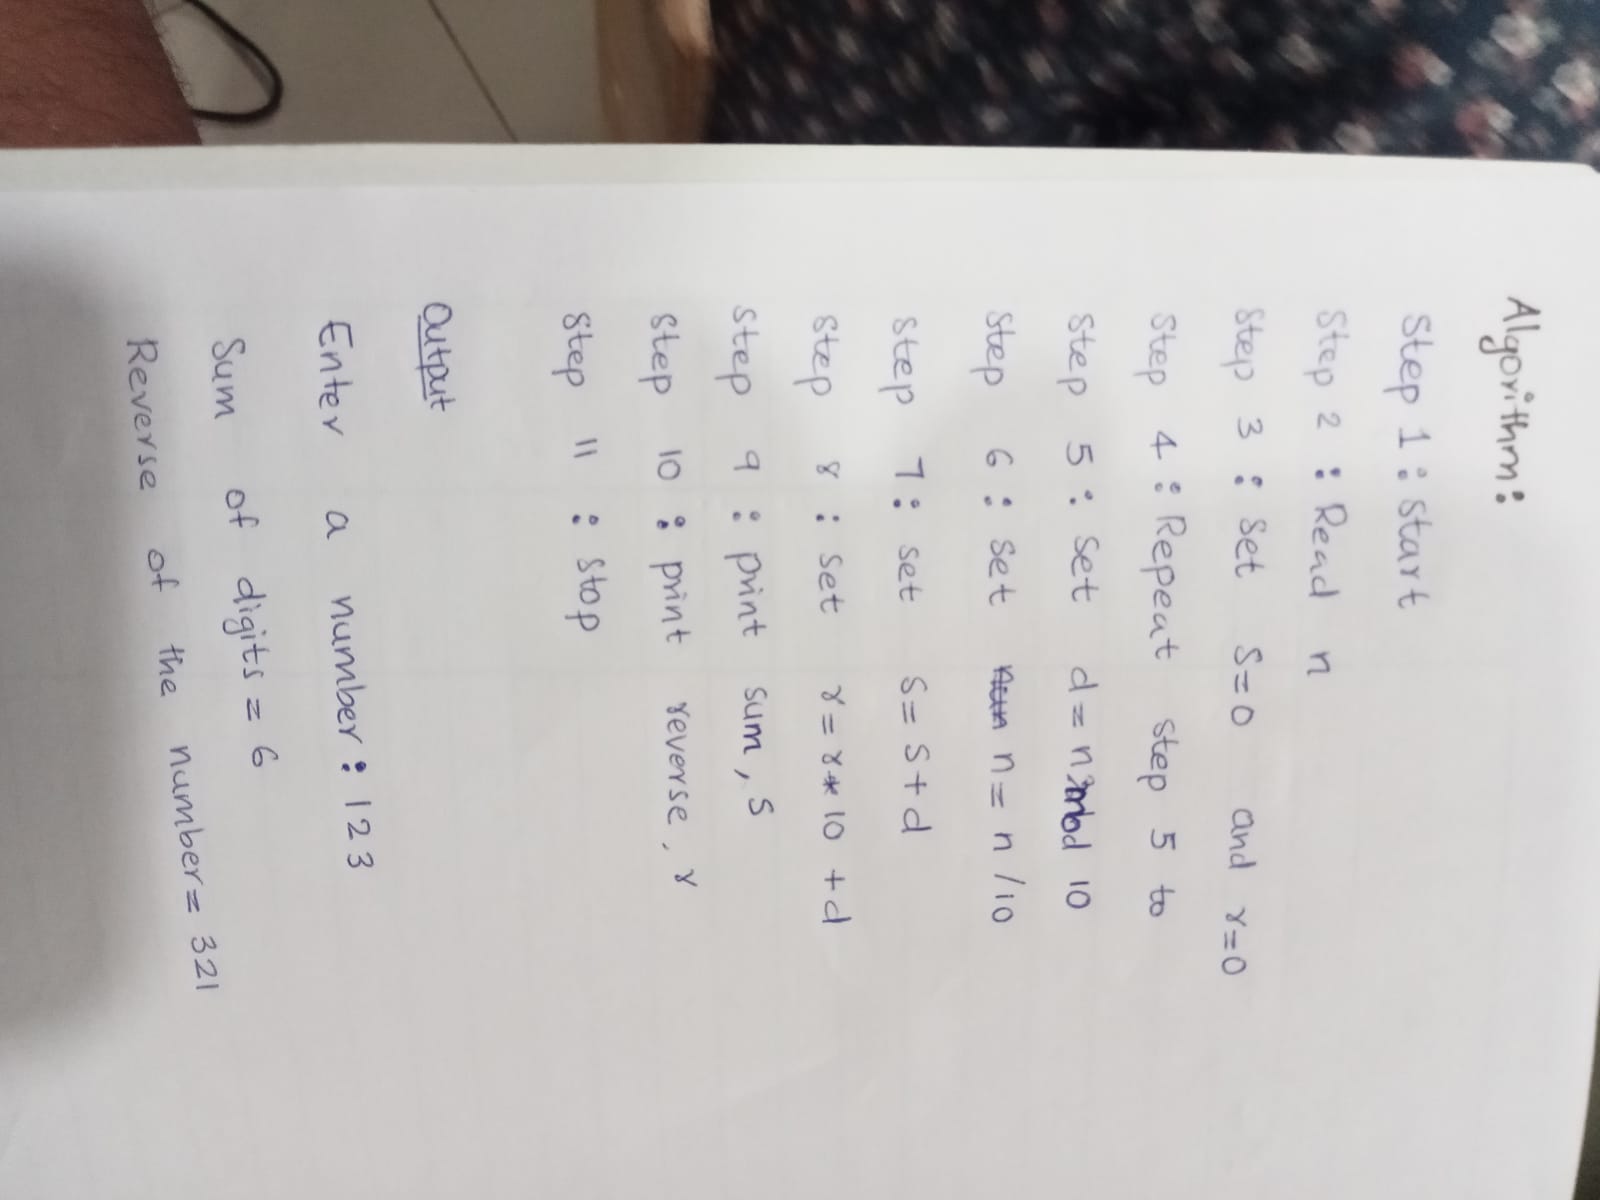 Algorithm:
Step 1 : Start
Step 2 : Read n
Step 3 : Set S=0 and r=0
Step 4 : Repeat step 5 to
Step 5 : Set d = n mod 10
Step 6 : Set n = n /10
Step 7 : set S= S+d
Step 8 : Set r= r* 10 +d
Step 9 : print sum, S
Step 10 : print reverse, r
Step 11 : Stop
Output
Enter a number : 123
Sum of digits = 6
Reverse of the number= 321